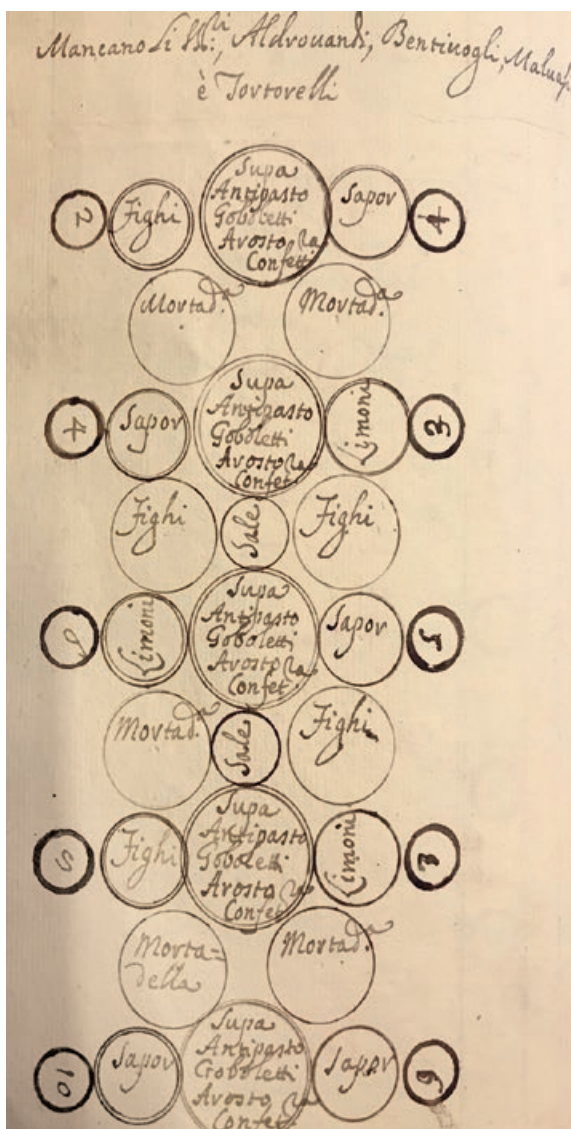 Mancano Li Aldrouandi, Bentiuogli,
è Tortorelli
2
Fighi
Supa
Antipasto
Goboletti
Arosto
Confetti
Sapor
Mortad.da
Mortad.da
4
Sapor
Supa
Antipasto
Goboletti
Arosto
Confet.
Limoni
3
Fighi
Sale
Fighi
Limoni
Supa
Antipasto
Goboletti
Arosto
Confet.
Sapor
5
Mortad.da
Sale
Fighi
Fighi
Supa
Antipasto
Goboletti
Arosto
Confet.
Limoni
Morta=
della
Mortad.da
10
Sapor
Supa
Antipasto
Goboletti
Arosto
Confet.
Sapor
9